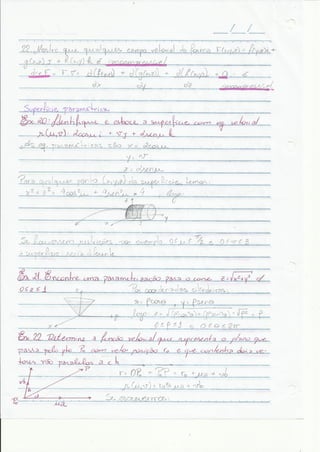 22. Mostre que qualquer campo vetorial da forma F(x,y,z) = f(y,z)i +
g(x,z)j + h(x,y)k é incompressível
div F = ∇·F = d(f(y,z)) + d(g(x,z)) + d(h(x,y)) = 0 é
dx dy dz incompressível
Superfície parametrizada
Ex. 20: Identifique e esboce a superfície com eq. vetorial
r(u,v) = 2cos u i + vj + 2sen u k
As eq. paramétricas são x = 2cos u
y = v
z = 2sen u
Para qualquer ponto (x,y,z) da superfície, temos:
x² + z² = 4cos²u + 4sen²u = 4, logo
Se houvessem restrições, por exemplo 0≤u≤π/2 e 0≤v≤3
a superfície seria diferente
Ex. 21. Encontre uma parametrização para o cone z=√x²+y² d
0≤z≤1 Por coordenadas cilíndricas:
x = ρcosθ, y = ρsenθ
logo z = √(ρcosθ)²+(ρsenθ)² = √ρ² = ρ
0≤ρ≤1 0≤θ≤2π
Ex. 22. Determine a função vetorial que representa o plano que
passa pelo pto P₀ com vetor posição r₀ e que contenha dois ve-
tores não paralelos a e b
r = OP₀ + P₀P = r₀ + ua + vb
r(u,v) = r₀ + ua + vb
Se escrevermos: